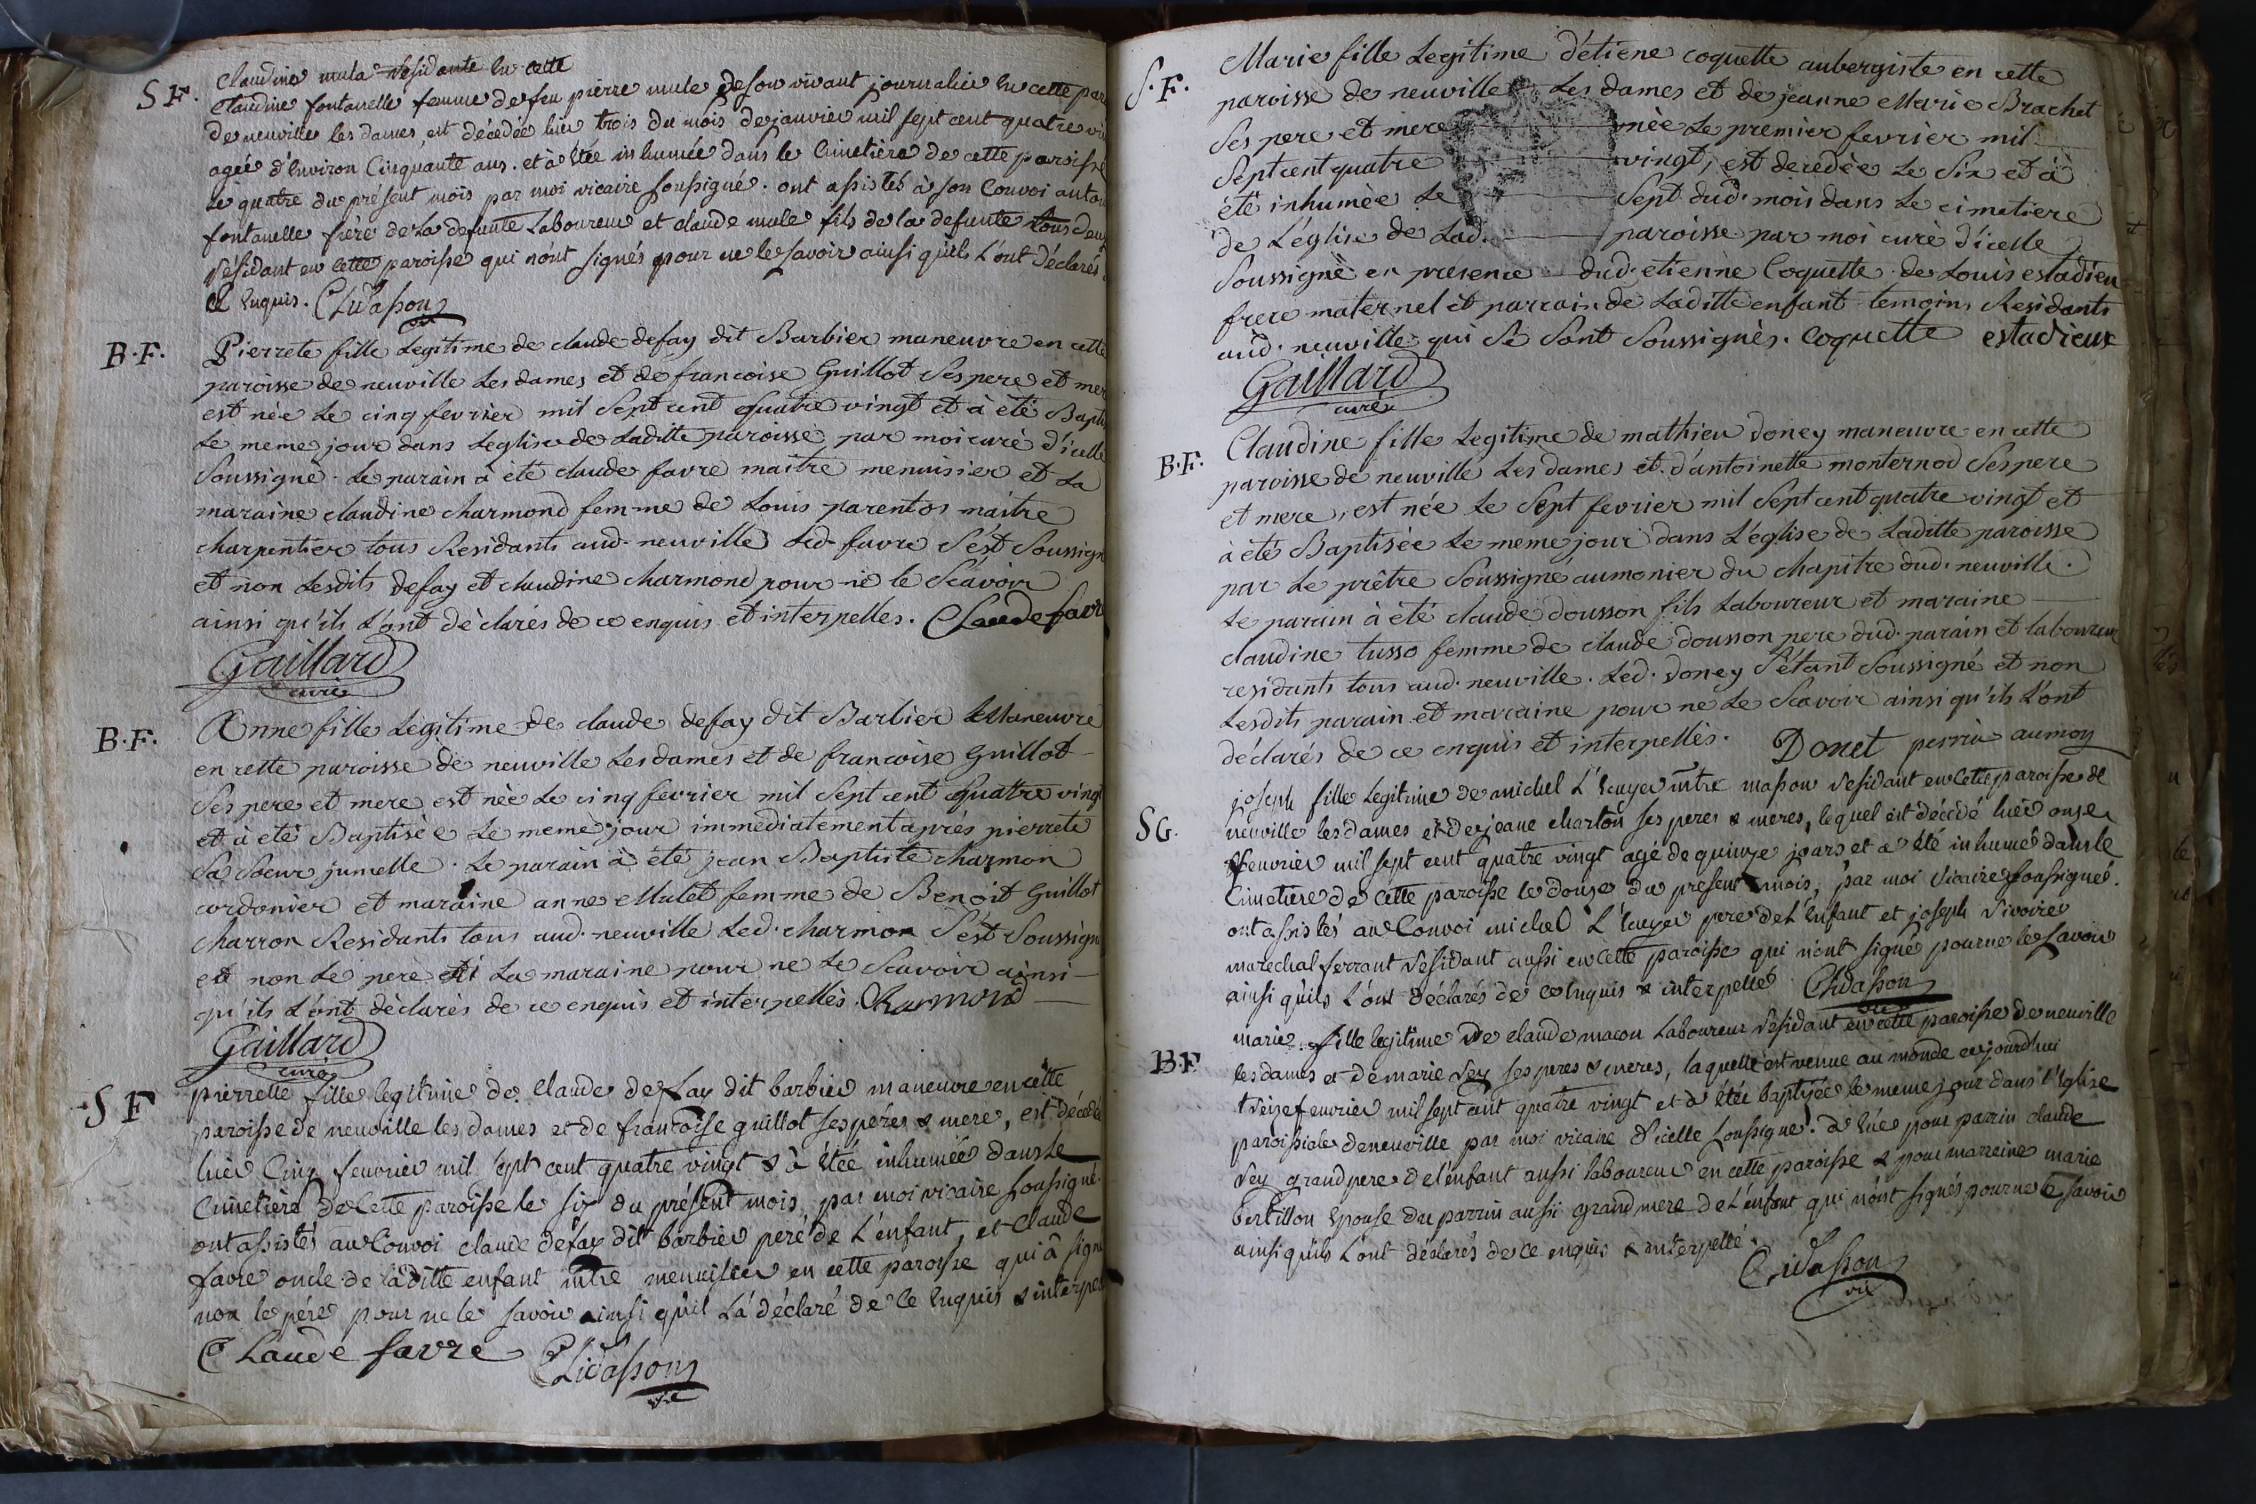 S F.
claudine mula residante en cette
claudine fontanelle femme de feu pierre mule de son vivant journalier en cette par
de neuville les dames, est décédée hier trois du mois de janvier mil sept cent quatre vi
agée d'environ Cinquante ans. et à été inhumée dans le Cimetière de cette paroisse
le quatre du présent mois par moi vicaire soussigné. ont assistés à son Convoi antoi
fontanelle frère de la defunte Laboureur et claude mule fils de la defunte tous deux
résidant en cette paroisse qui n'ont signés pour ne le savoir ainsi qu'ils l'ont déclarés
enquis. Chidasson
vic
B.F.
Pierrete fille Legitime de claude defay dit Barbier maneuvre en cette
paroisse de neuville Les dames et de francoise Guillot Ses pere et mere
est née Le cinq fevrier mil Sept cent quatre vingt et à été Bapti
Le meme jour dans L'eglise de Laditte paroisse par moi curè d'icelle
Soussigné. Le parain à été claude favre maitre menuisier et La
maraine claudine charmond femme de Louis parentos maitre
charpentier tous Residants aud. neuville Led. favre S'est Soussign
et non Lesdits defay et claudine charmond pour ne le Scavoir
ainsi qu'ils L'ont dèclarés de ce enquis et interpelles. Claude favr
Gaillard
curé
B.F.
Anne fille Legitime de claude defay dit Barbier Maneuvre
en cette paroisse de neuville Les dames et de francoise Guillot
Ses pere et mere est nèe Le cinq fevrier mil Sept cent quattre vingt
et à eté Baptisèe Le meme jour immediatement après pierrete
Sa Soeur jumelle. Le parain à été jean Baptiste charmon
cordonier et maraine anne Mulet femme de Benoit Guillot
charron Residants tous aud. neuville Led. charmon S'est Soussign
et non Le pere et La maraine pour ne Le Scavoir ainsi
qu'ils L'ont dèclarès de ce enquis et interpellés. Charmond
Gaillard
curé
S F
pierrette fille legitime de claude defay dit barbier maneuvre en cette
paroisse de neuville les dames et de francoise guillot ses pères & mere, est décédée
hier Cinq feuvrier mil sept cent quatre vingt & à étée inhumée dans le
Cimetière de cette paroisse le six du présent mois, par moi vicaire soussigné.
ont assistés au Convoi claude defay dit barbier peré de L'enfant, et claude
favre oncle de laditte enfant mtre menuisier en cette paroisse qui â signé
non le pére pour ne le savoir ainsi qu'il l'à déclaré de ce enquis & interpel
Claude favre Chidasson
vic
S.F.
Marie fille Legitime d'étiene coquette aubergiste en cette
paroisse de neuville Les dames et de jeanne Marie Brachet
Ses pere et mere nèe Le premier fevrier mil
Sept cent quatre vingt, est decedèe Le Six et à
été inhumèe Le Sept dud. mois dans Le cimetiere
de L'église de Lad. paroisse par moi curé d'icelle
Soussigné en presence dud. etienne Coquette de Louis estadieu
frere maternel et parrain de Laditte enfant temoins Residants
aud. neuville qui Se Sont Soussignés. coquette estadieux
Gaillard
curé
B.F.
Claudine fille Legitime de mathieu Doney maneuvre en cette
paroisse de neuville Les dames et d'antoinette monternod Ses pere
et mere, est née Le Sept fevrier mil Sept cent quatre vingt et
à été Baptisèe Le meme jour dans L'église de Laditte paroisse
par Le prêtre Soussigné aumonier du chapitre dud. neuville.
Le parain à été claude dousson fils Laboureur et maraine
claudine tusso femme de claude dousson pere dud. parain et laboureur
residants tous aud. neuville. Led. Doney S'étant Soussigné et non
Lesdits parain et maraine pour ne Le Scavoir ainsi qu'ils L'ont
dèclarés de ce enquis et interpellés. Donet perrin aumon
S G.
joseph fille Legitime de michel L'huye mtre masson residant en cette paroisse de
neuville les dames et de jeane charton ses peres & meres, lequel est décédé hier onze
feuvrier mil sept cent quatre vingt agé de quinze jours et a été inhumé dans le
Cimetiere de cette paroisse le douze du présent mois, par moi Vicaire soussigné.
ont assistés au Convoi michel L'huye pere de L'enfant et joseph Vivoire
marechal ferrant résidant aussi en cette paroisse qui n'ont signé pour ne le savoir
ainsi qu'ils L'ont déclarés de ce enquis & interpellé Chidasson
vic
B.F
marie fille legitime de claude macon Laboureur résidant en cette paroisse de neuville
les dames et de marie Vey ses peres & meres, laquelle est venue au monde aujourd'hui
treize feuvrier mil sept cent quatre vingt et à étée baptizée le meme jour dans l'Eglise
paroissiale de neuville par moi vicaire d'icelle soussigné. a eûe pour parrin claude
Vey grand pere de l'enfant aussi laboureur en cette paroisse & pour marreine marie
bertillon épouse du parrin aussi grand mere de l'enfant qui n'ont signés pour ne le savoir
ainsi qu'ils L'ont déclarés de ce enquis & interpellé.
Chidasson
vic